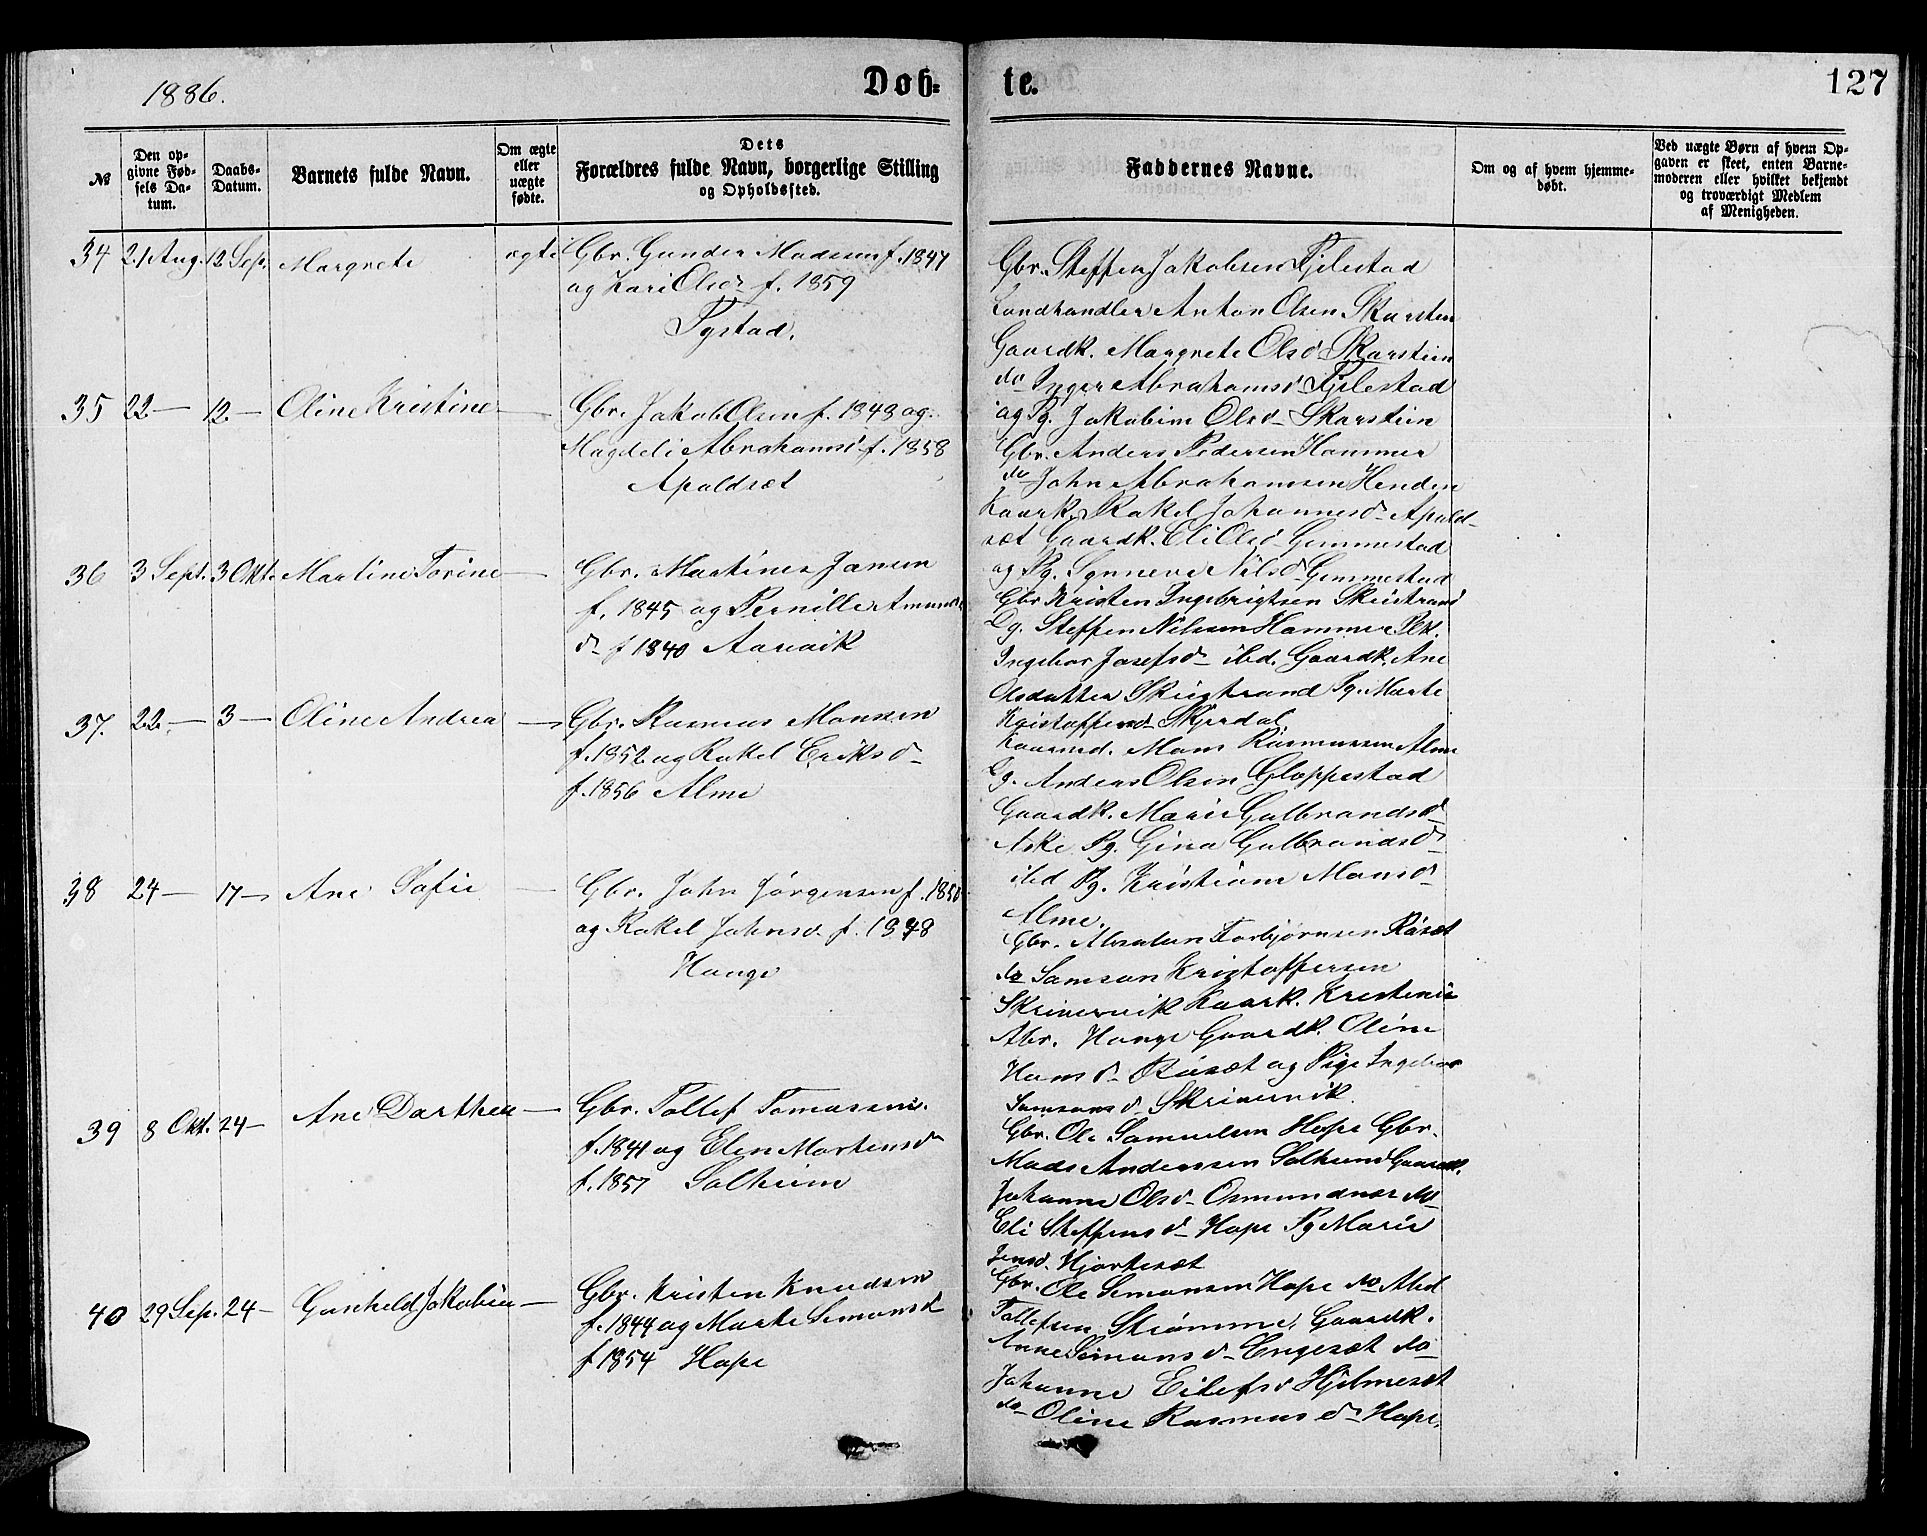 1886.
Døb=
te.
127
№
Den op=
givne Fød=
sels Da=
tum.
Daabs=
Datum.
Barnets fulde Navn.
Om ægte
eller
uægte
fødte.
Dets
Forældres fulde Navn, borgerlige Stilling
og Opholdssted.
Faddernes Navne.
Om og af hvem hjemme=
døbt.
Ved uægte Børn af hvem Op=
gaven er skeet, enten Barne=
moderen eller hvilket bekjendt
og troværdigt Medlem
af Menigheden.
34 21 Aug. 12 Sep. Margrete ægte
Gbr. Gunder Madssen f. 1847
og Kari Olsd f. 1859
Rystad.
Gbr. Steffen Jakobsen Fjelestad
Landhandler Anton Olsen Skarsten
Gaardk. Margrete Olsd Skarstein
do Inger Abrahamsd Fjelestad
og Pg. Jakobine Olsd Skarstein
35 22 — 12 — Oline Kristine —
Gbr. Jakob Olsen f. 1848 og
Magdeli Abrahamsd f. 1858
Apaldsæt
Gbr. Anders Pedersen Hammer
do John Abrahamsen Henden
Kaark. Rakel Johannesd Apald-
sæt Gaardk. Eli Olsd Gemmestad
og Pg. Synneve Nilsd Gemmestad
36 3 Sept. 3 Okt. Martine Torine —
Gbr. Martinus Jansen
f. 1845 og Pernille Amunds
d f 1840 Aarvik
Gbr Kristen Ingebrigtsen Skeistrand
Lg. Steffen Nilssen Hammer Pek.
Ingebor Josefsd ibd. Gaardk. Ane
Olsdatter Skeistrand Pg. Marte
Kristoffersd Skjerdal
37. 22 — 3 — Oline Andrea —
Gbr. Rasmus Monssen
f. 1852 og Rakel Eriksd
f. 1856 Alme
Kaarmd. Mons Rasmussen Alme
Lg. Anders Olsen Gloppestad
Gaardk. Marie Gulbrandsd
Aske Pg. Gina Gulbrandsd
ibd Pg. Kristiane Monsd
Alme.
38 24 — 17 — Ane Sofie —
Gbr. John Jørgensen f. 1850
og Rakel Johnsd f. 1848
Hauge
Gbr. Absalon Torbjørnsen Røsæt
do Samson Kristoffersen
Skrivervik Kaark. Kristense
Abr. Hauge Gaardk. Oline
Hansd Røsæt og Pige Ingebor
Samsonsd Skrivervik.
39 8 Okt. 24 — Ane Dorthea —
Gbr. Tollef Tomassen
f. 1841 og Elen Mortensd
f. 1857 Solheim
Gbr. Ole Samuelsen Hope Gbr.
Mads Anderssen Solheim Gaardk.
Johanne Olsd Osmundnæs do
Eli Steffensd Hope Pg Marie
Jensd. Hjortesæt
40 29 Sep. 24 — Gunhild Jakobine —
Gbr. Kristen Knudsen
f. 1844 og Marte Simonsd
f 1854 Hope
Gbr. Ole Simonsen Hope do Abel
Tollefsen Strømme. Gaardk.
Anne Simonsd Engesæt do
Johanne Eilefsd Hjelmesæt
do Oline Rasmusd Hope.